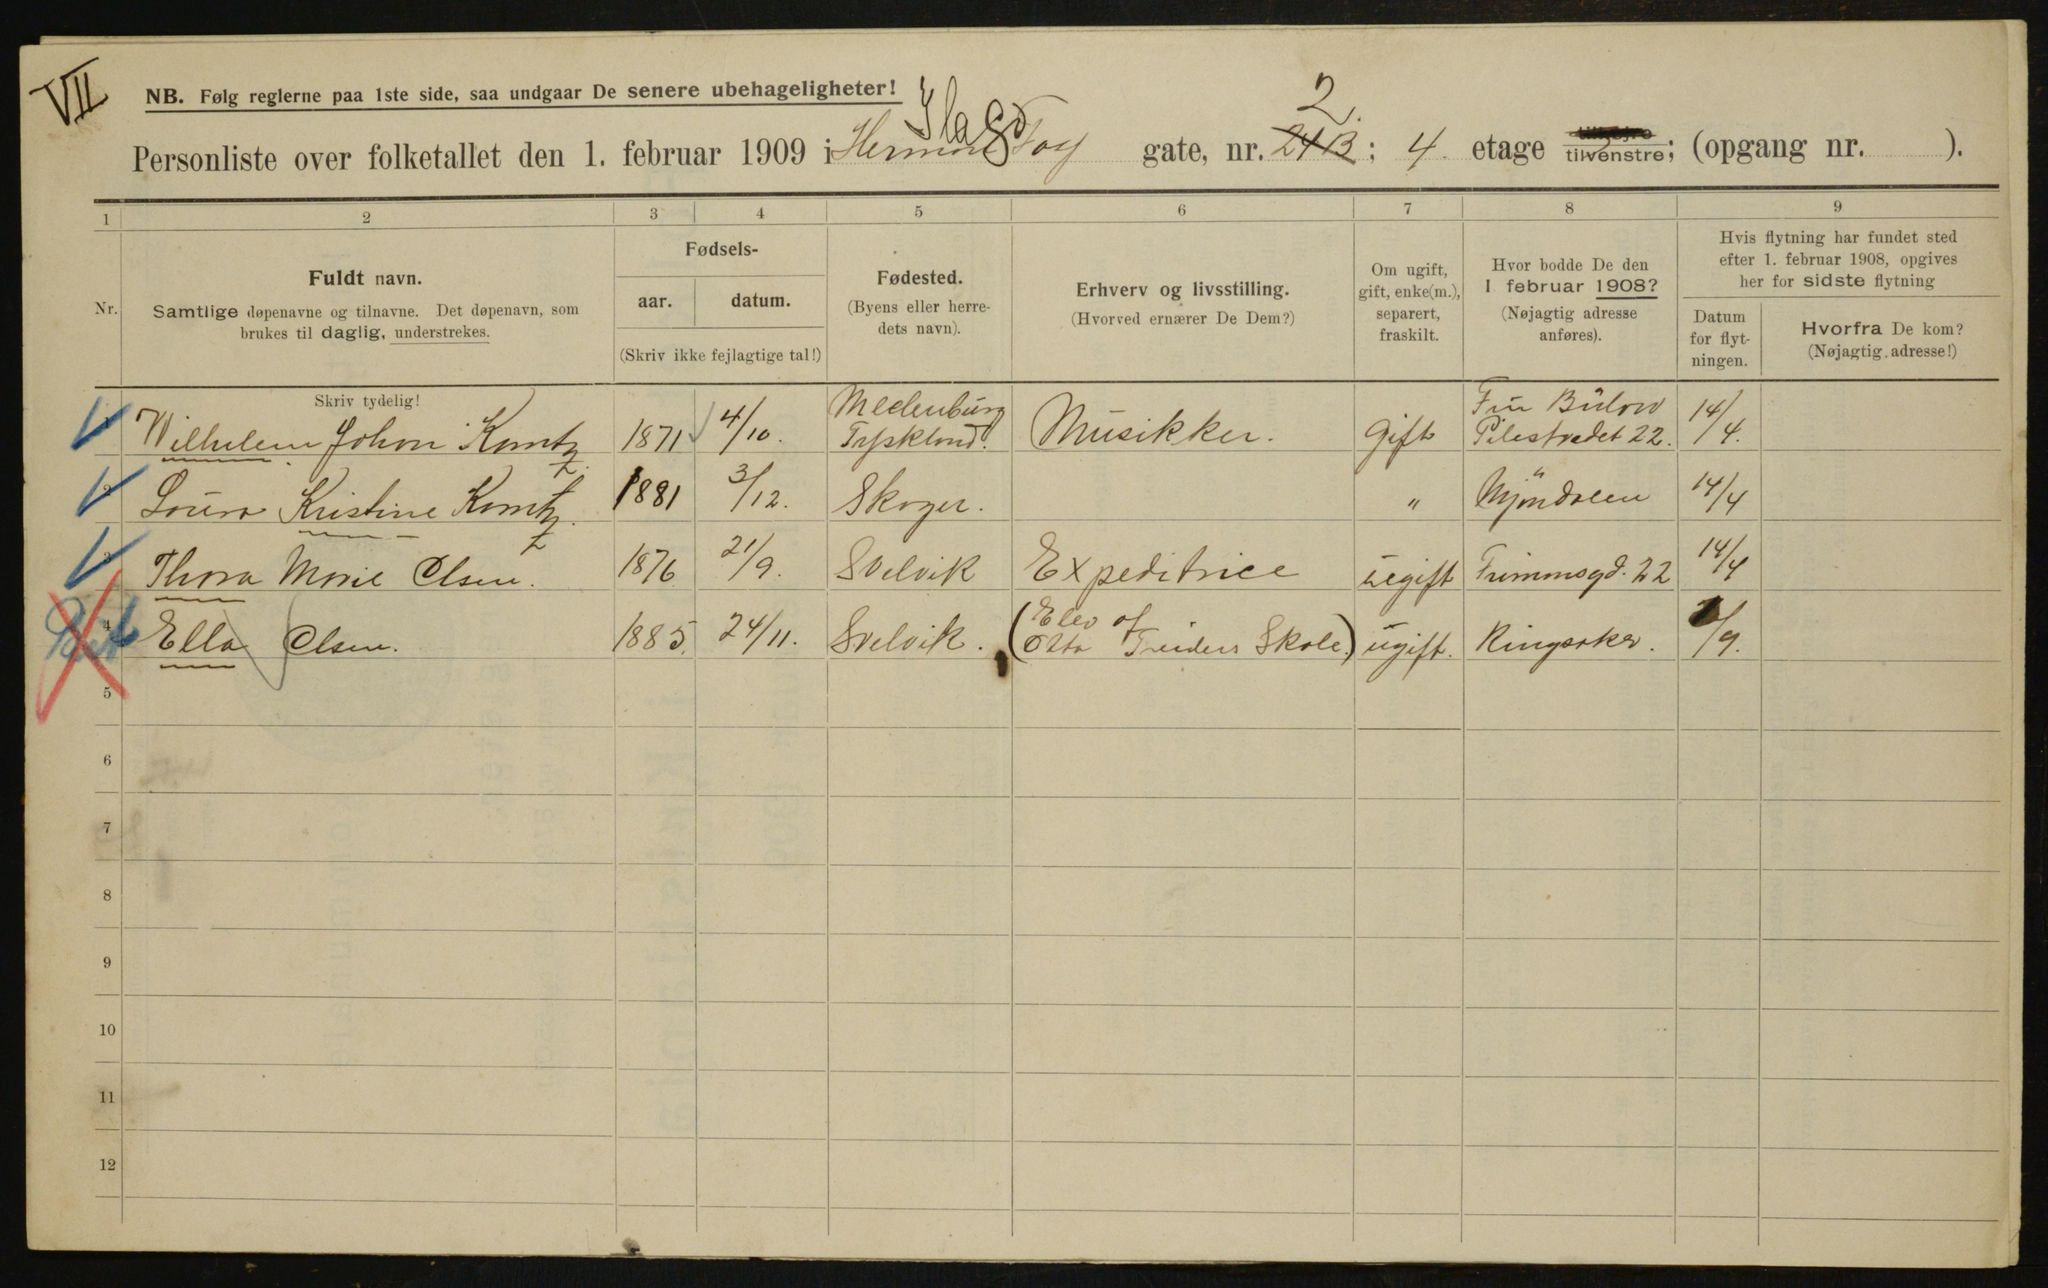 VII
NB. Følg reglerne paa 1ste side, saa undgaar De senere ubehageligheter!
Personliste over folketallet den 1. februar 1909 i Herman Foss gate, nr. 24 B 2.; 4. etage tilhøjre tilvenstre; (opgang nr. ).
1 2 3 4 5 6 7 8 9
Nr.
Fuldt navn.
Samtlige døpenavne og tilnavne. Det døpenavn, som
brukes til daglig, understrekes.
Fødsels-
aar. datum.
(Skriv ikke fejlagtige tal!)
Fødested.
(Byens eller herre-
dets navn).
Erhverv og livsstilling.
(Hvorved ernærer De Dem?)
Om ugift,
gift, enke(m.),
separert,
fraskilt.
Hvor bodde De den
1 februar 1908?
(Nøjagtig adresse
anføres).
Hvis flytning har fundet sted
efter 1. februar 1908, opgives
her for sidste flytning
Datum
for flyt-
ningen.
Hvorfra De kom?
(Nøjagtig adresse!)
Skriv tydelig!
1 Wilhelem Johan Kamtz 1871 4/10. Meclenburg Tyskland. Musikker. Gift Pilestrædet 22. 14/4.
2 Laura Kristine Kamtz. 1881 3/12. Skoger. " Mjöndalen 14/4
3 Thora Marie Olsen. 1876 21/9. Svelvik Expeditrice ugift 22 14/4
4 Ella Olsen. 1885. 24/11. Svelvik. (Elev af Otto Treiders Skole.) ugift. Ringsaker. /9.
5
6
7
8
9
10
11
12